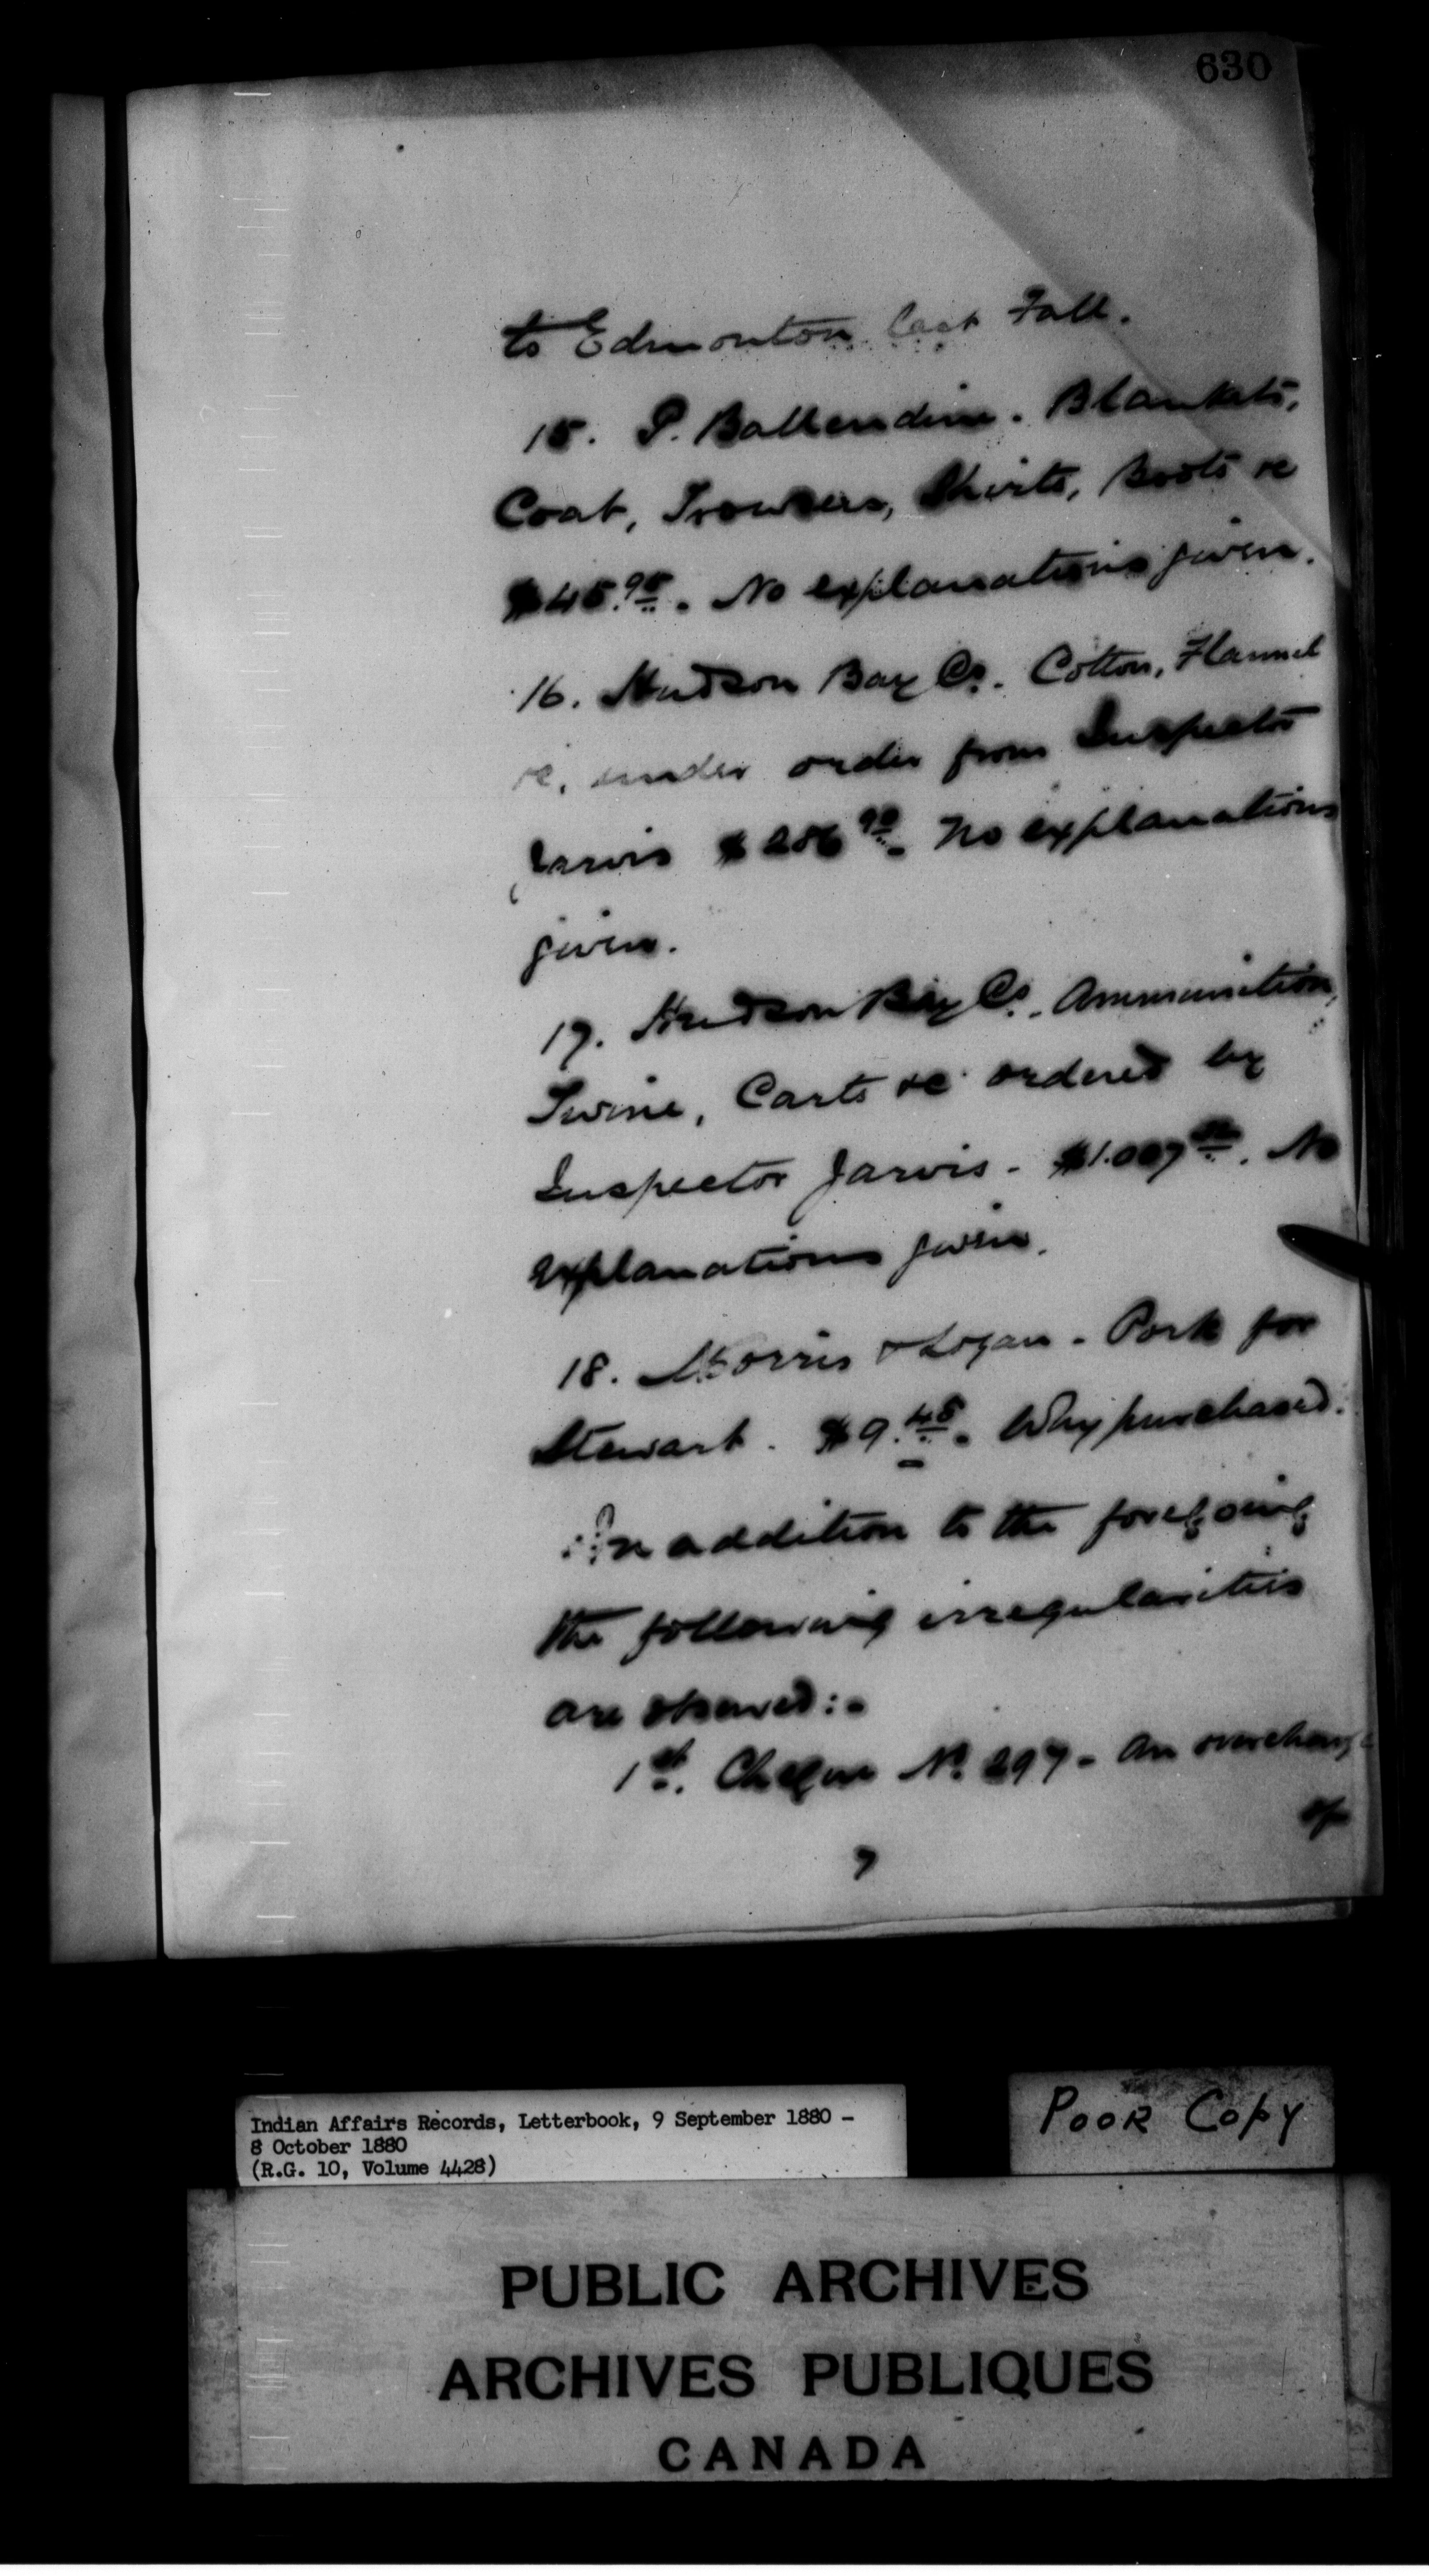 630
to Edmonton last Fall.
15. P. Ballendine. Blankets,
Coat, Trousers, Shirts, Boots &c
$45.95. No explanations given.
16. Hudson Bay Co. Cotton, Flannel
&c, under order from Inspector
Jarvis $286 90. No explanations
given.
17. Hudson Bay Co. Ammunition,
Twine, Carts &c ordered by
Inspector Jarvis - $1.007. No
explanations given.
18. Norris & Logan - Pork for
Stewart. $9.45. Why purchased.
In addition to the foregoing
the following irregularities
are observed:-
1st. Cheque No. 297 - An overcharge
of
7
Indian Affairs Records, Letterbook, 9 September 1880 -
8 October 1880
(R.G. 10, Volume 4428)
Poor Copy
PUBLIC ARCHIVES
ARCHIVES PUBLIQUES
CANADA